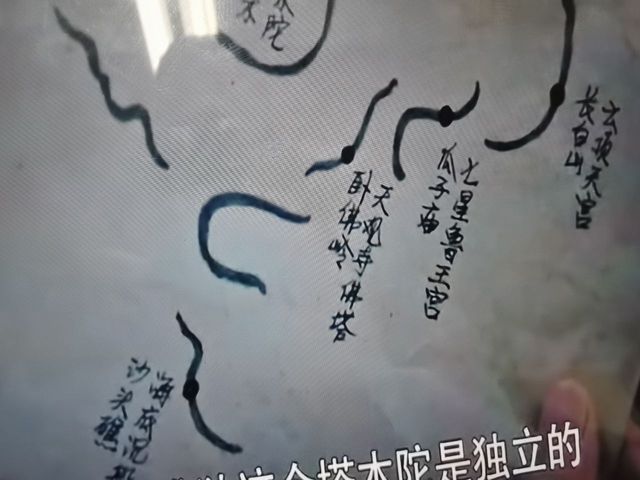 木陀
长白山
云顶天宫
瓜子庙
七星鲁王宫
卧佛岭
天观寺佛塔
沙头礁
海底沉船
这个塔木陀是独立的